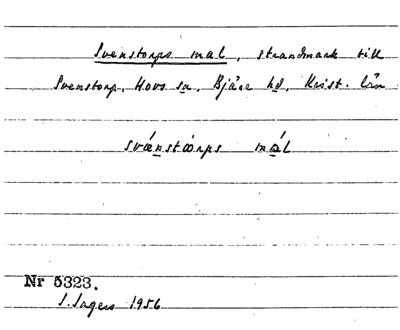 Svenstorps mal, strandmark till
Svenstorp, Hovs sn, Bjäre hd, Krist. län
svǽnstórps mál
Nr 5323.
S. Sagers 1956